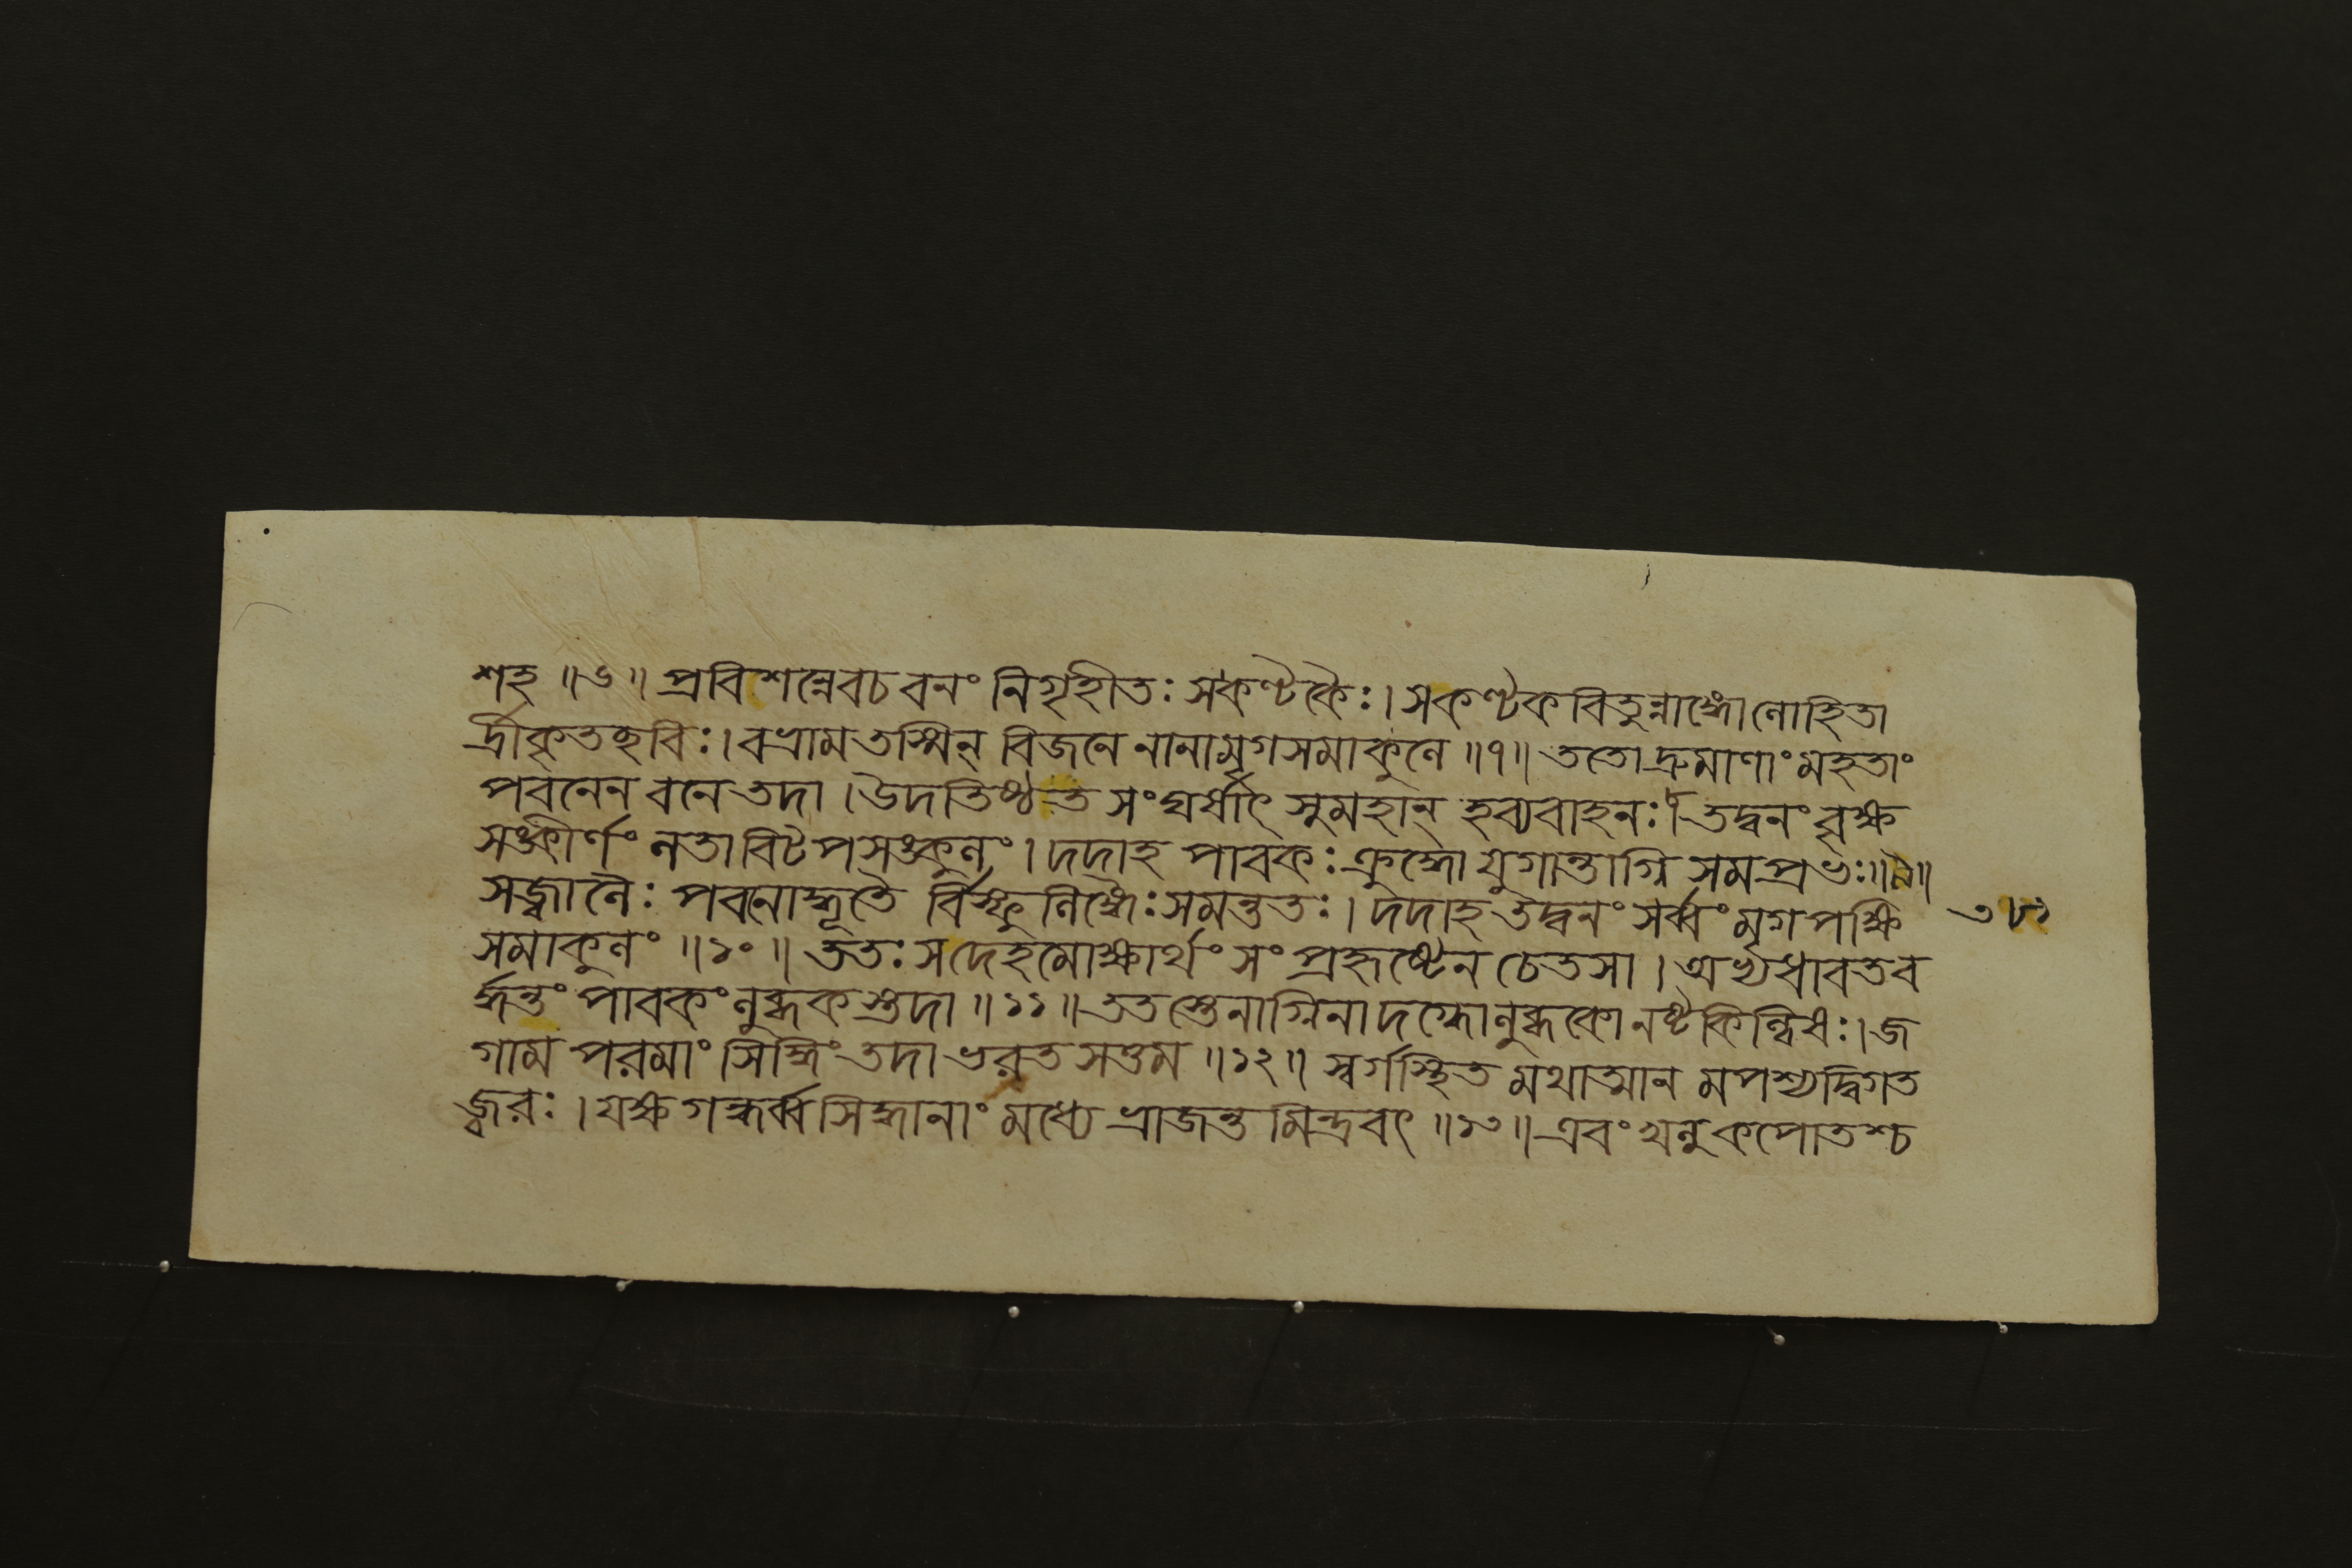 শহ ॥৬॥ প্রবিশন্নেবচ বনং নিগৃহীতঃ সকণ্টকৈঃ। সকণ্টকবিতুন্নাঙ্গোলোহিতা
র্দ্রীকৃতছবিঃ। বভ্রাম তস্মিন্ বিজনে নানামৃগসমাকুলে ॥৭॥ ততোদ্রুমাণাং মহতাং
পবনেন বনে তদা। উদতিষ্ঠত সংঘর্ষাৎ সুমহান্ হব্যবাহনঃ। তদ্বনং বৃক্ষ
সঙ্কীর্ণং লতাবিটপসঙ্কুলং। দদাহ পাবকঃ ক্রুদ্ধো যুগান্তাগ্নিসমপ্রভঃ॥৯॥
সজ্বালৈঃ পবনোদ্ধূতৈ র্বিস্ফুলিঙ্গৈঃ সমন্ততঃ। দদাহ তদ্বনং সর্ব্বং মৃগপক্ষি
সমাকুলং ॥১০॥ ততঃ সদেহমোক্ষার্থং সংপ্রহৃষ্টেন চেতসা। অভ্যধাবতব
র্দ্ধন্তং পাবকং লুব্ধকস্তদা ॥১১॥ ততস্তেনাগ্নিনাদগ্ধোলুব্ধকো নষ্টকিল্বিষঃ। জ
গাম পরমাং সিদ্ধিং তদা ভরতসত্তম ॥১২॥ স্বর্গস্থিত মথাত্মান মপশ্যদ্বিগত
জ্বরঃ। যক্ষগন্ধর্ব্বসিদ্ধানাং মধ্যে ভ্রাজন্ত মিন্দ্রবৎ ॥১৩॥ এবং খলু কপোতশ্চ
৩৮১